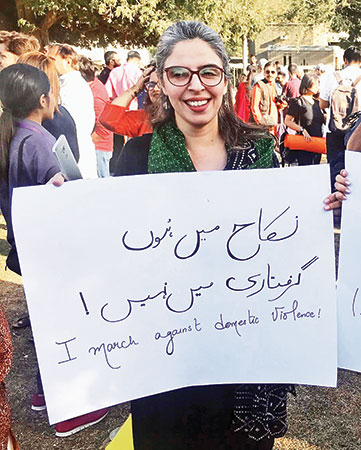 نکاح میں ہُوں
گرفتاری میں نہیں!
I march against domestic violence!